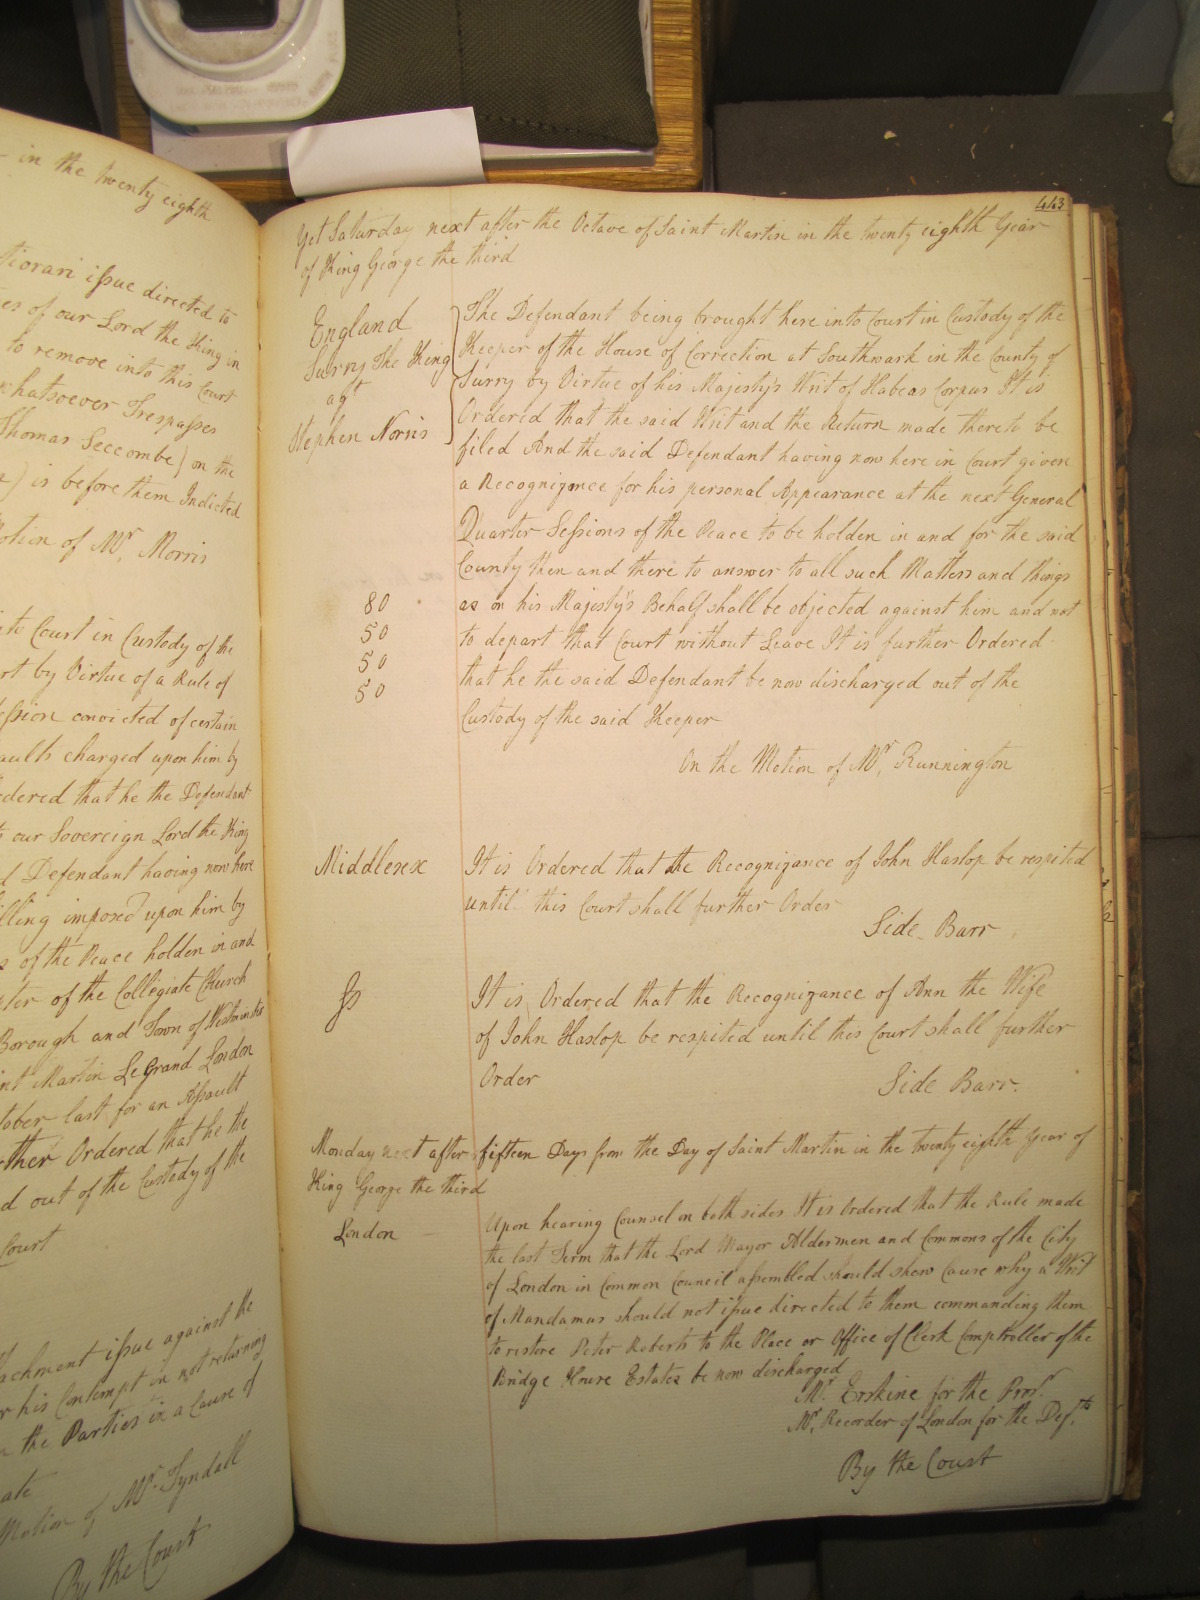 in the twenty eighth
tiorari issue directed to
es of our Lord the King in
to remove into this Court
whatsoever Trespasses
Thomas Seccombe) on the
) is before them Indicted
otion of Mr. Morris
to Court in Custody of the
rt by Virtue of a Rule of
ession convicted of certain
aults charged upon him by
dered that he the Defendant
to our Sovereign Lord the King
d Defendant having now here
illing imposed upon him by
s of the Peace holden in and
ter of the Collegiate Church
Borough and Town of Westminster
int Martin Le Grand London
tober last for an Assault
rther Ordered that he the
d out of the Custody of the
Court
achment issue against the
r his Contempt in not returning
the Parties in a Cause of
ate
Motion of Mr. Tyndall
By the Court
443
Yet Saturday next after the Octave of Saint Martin in the twenty eighth Year
of King George the third
England
Surry The King
agt
Stephen Norris
The Defendant being brought here into Court in Custody of the
Keeper of the House of Correction at Southwark in the County of
Surry by Virtue of his Majesty's Writ of Habeas Corpus It is
Ordered that the said Writ and the Return made thereto be
filed And the said Defendant having now here in Court given
a Recognizance for his personal Appearance at the next General
Quarter Sessions of the Peace to be holden in and for the said
County then and there to answer to all such Matters and things
80 as on his Majesty's Behalf shall be objected against him and not
50 to depart that Court without Leave It is further Ordered
50 that he the said Defendant be now discharged out of the
50 Custody of the said Keeper
On the Motion of Mr. Runnington
Middlesex It is Ordered that the Recognizance of John Haslop be respited
until this Court shall further Order
Side Barr
Ss It is Ordered that the Recognizance of Ann the Wife
of John Haslop be respited until this Court shall further
Order
Side Barr.
Monday next after fifteen Days from the Day of Saint Martin in the twenty eighth Year of
King George the third
London Upon hearing Counsel on both sides It is Ordered that the Rule made
the last Term that the Lord Mayor Aldermen and Commons of the City
of London in Common Council assembled should shew Cause why a Writ
of Mandamus should not issue directed to them commanding them
to restore Peter Roberts to the Place or Office of Clerk Comptroller of the
Bridge House Estates be now discharged
Mr. Erskine for the Pros.
Mr. Recorder of London for the Defts
By the Court